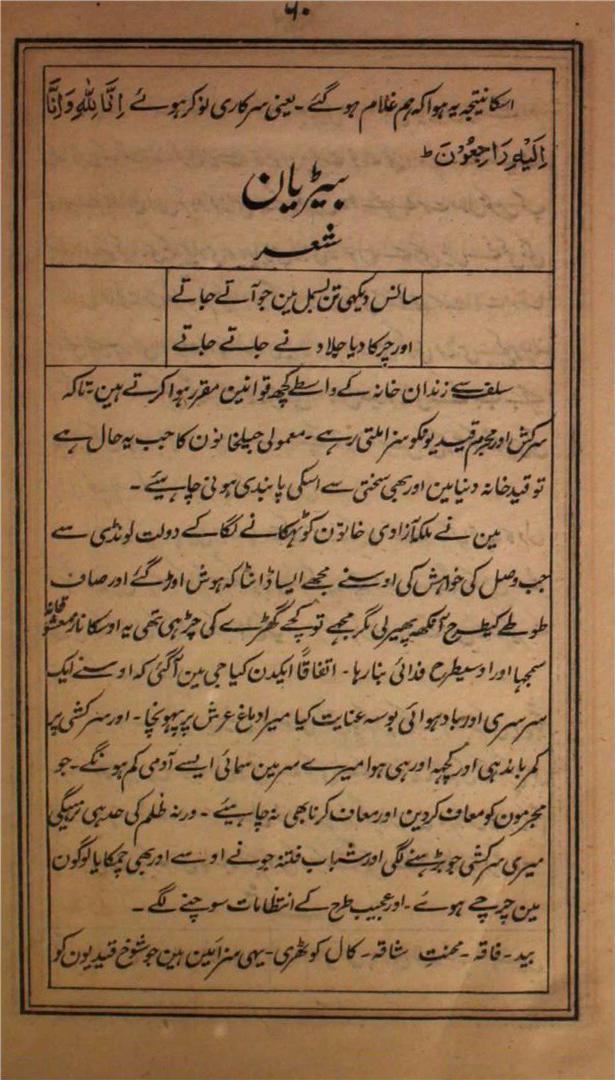 ۶۰
اسکا نتیجہ یہ ہوا کہ ہم غلام ہوگئے ۔ یعنی سرکاری نوکر ہوئے اِنَّا لِلّٰہِ وَاِنَّا
اِلَیْہِ رَاجِعُوْنَ ط
بیڑیان
شعر
سانس دیکھی تن بسمل مین جو آتے جاتے
اور چرکا دیا جلاد نے جاتے جاتے
سلف سے زندان خانہ کے واسطے کچھ قوانین مقرر ہوا کرتے ہین ۔ تاکہ
سرکش اور مجرم قیدیونکو سزا ملتی رہے ۔ معمولی جیلخانون کا جب یہ حال ہے
تو قید خانہ دنیا مین اور بھی سختی سے اسکی پابندی ہونی چاہیئے ۔
مین نے ملکہ آزادی خاتون کو ٹہکانے لگا کے دولت لونڈیی سے
جب وصل کی خواہش کی اوسنے مجھے ایسا ڈانٹا کہ ہوش اوڑ گئے اور صاف
طوطے کیطرح آنکھ پھیر لی مگر مجھے تو کچے گھڑے کی چڑہی تھی یہ اوسکا ناز معشوقانہ
سمجہا اور اوسیطرح فدائی بنا رہا ۔ اتفاقاً ایکدن کیا جی مین آگئی کہ اوسنے ایک
سرسری اور باد ہوائی بوسہ عنایت کیا میرا دماغ عرش پر پہونچا ۔ اور سرکشی پر
کمر باندہی اور کچہہ اور ہی ہوا میرے سر مین سمائی ایسے آدمی کم ہونگے ۔ جو
مجرمون کو معاف کردین اور معاف کرنا بھی نہ چاہیئے ۔ ورنہ ظلم کی حد ہی نرہیگی
میری سرکشی جو بڑہنے لگی اور شباب فتنہ جو نے اوسے اور بھی چمکایا لوگون
مین چرچے ہوئے ۔ اور عجیب طرح کے انتظامات سوچنے لگے ۔
بید ۔ فاقہ ۔ محنتِ شاقہ ۔ کال کوٹھری ۔ یہی سزائین ہین جو شوخ قیدیون کو